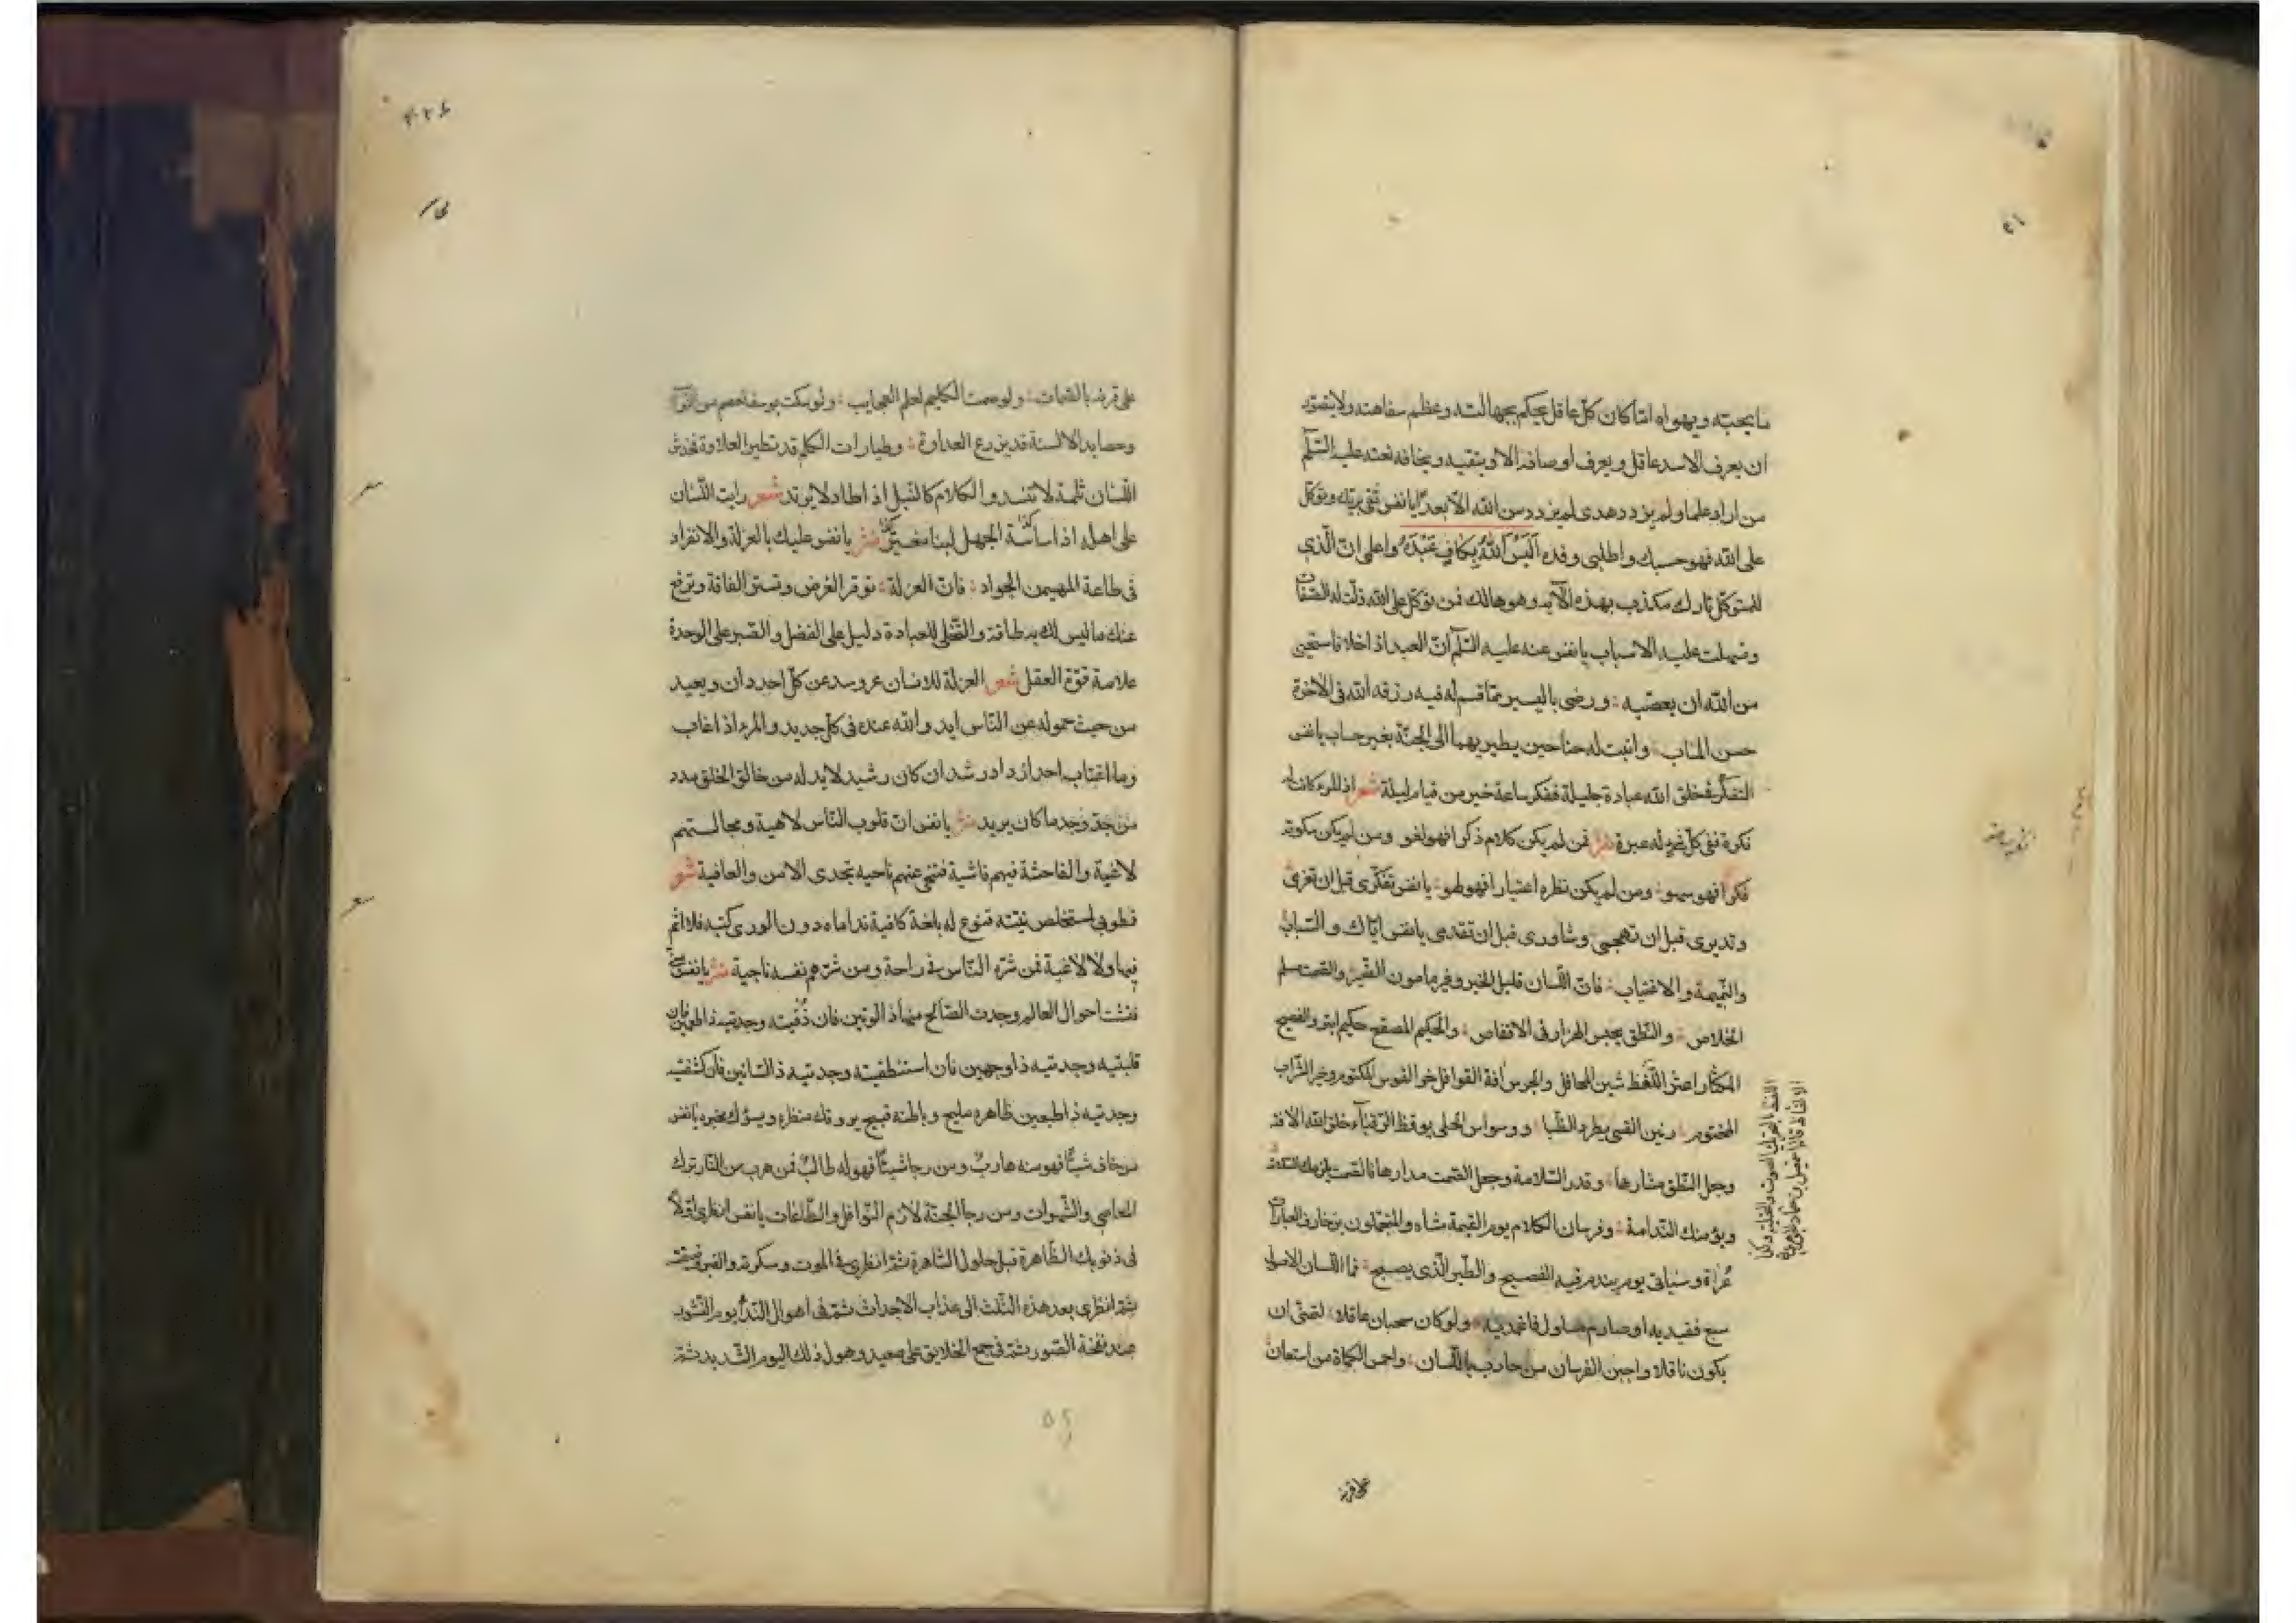 ما يحبّه ويهواه لتاكان كلّ عاقل يحكم بجهالته وعظم سفاهته ولا يتصوّر
ان يعرف الاسد عاقل ويعرف اوصافه الا ويتقيه ويخافه نعته عليه السّلم
من اراد علما ولم يزدد هدى لم يزدد من الله الّا بعدًا يا نفس ثقى بربّك وتوكّل
على الله فهو حسبك واطلبى وفده اَلَيْسَ اللهُ بِكافٍ عَبْدَهُ واعلى انّ الّذى
للمتوكّل تارك مكذب بهذه الآية وهو هالك فمن توكّل على الله ذلّت له الصّعاب
وتسهلت عليه الاسباب يا نفس عنه عليه السّلم انّ العبد اذا خلا فاستحيى
من الله ان يعصيه ورضى باليسير ممّا قسم له فيه رزقه الله فى الآخرة
حسن المآب وانبت له جناحين يطير بهما الى الجنّة بغير حساب يا نفس
التفكّر فى خلق الله عبادة جليلة ففكر ساعة خير من قيام ليلة شعر اذا المرء كانت له
فكرة ففى كلّ شىء له عبرة نثر فمن لم يكن كلام ذكرا فهو لغو ومن لم يكن سكوته
فكرا فهو سهو ومن لم يكن نظره اعتبارا فهو لهو يا نفس تفكّرى قبل ان تعزمى
وتدبرى قبل ان تهجمى وشاورى قبل ان تقدمى يا نفس ايّاك والسّباب
والنّميمة والاغتياب فانّ اللّسان قليل الخير وفيرها صون الضّير والصّمت سلم
الخلاص والنّطق يحبس الهزار فى الاقفاص والحكيم المصقع حكيم ابتر والفصيح
المكثار اعثر اللّغط شين المحافل والجرس آفة القوافل خر الفوس المكتوم وخير الشّراب
المختوم رنين القسى يطرد الظّبا ووسواس الحلى يوقظ الرّقباء خلق الله الآفة
وجعل النّطق مثارها وقدر السّلامة وجعل الصّمت مدارها فالصّمت يلزمك السّلامة
ويؤمنك النّدامة وفرسان الكلام يوم القيمة مشاة والمتجمّلون بزخارف العبارات
عُراة وسياتى يوم يندم فيه الفصيح والطّير الّذى يصيح فما اللّسان الا
سبع فقيديه او صارم مصاول فاغمديه ولو كان سحبان عاقلا لتمنّى ان
يكون ناقلا واجبن الفرسان من حارب باللّسان واحمى الكماة من استعان
على قرنه
اللغط بالتحريك الصوت والجلبة وكذا
على قرنه بالصّمات ولو صمت الكليم لعلم العجايب ولو سكت يوسف لعصم من النّوائب
وحصايد الالسنة قد يزرع العداوة وطيارات الكلم قد تطير العلاوة فخدش
اللّسان ثلمة لا تنسد والكلام كالنّبل اذا طار لا يرتد شعر رايت اللّسان
على اهله اذا ساسه الجهل ليثا مغيرا نثر يا نفس عليك بالعزلة والانفراد
فى طاعة المهيمن الجواد فانّ العزلة توقر العرض وتستر الفاقة وترفع
عنك ما ليس لك به طاقة والتّخلى للعبادة دليل على الفضل والصّبر على الوحدة
علامة قوّة العقل شعر العزلة للانسان عروسه عن كلّ احد دان وبعيد
من حيث خموله عن النّاس ايد والله عنده فى كلّ جديد والمرء اذا غاب
وما اغتاب احدا زداد رشدا ان كان رشيد لا بد له من خالق الخلق مدد
من جدّ وجد ما كان يريد نثر يا نفس انّ قلوب النّاس لاهية ومجالستهم
لاغية والفاحشة فيهم فاشية فتنحى عنهم ناحيه تجدى الامن والعافية شعر
فطوبى لمستخلص بيته قنوع له بلغة كافية نداماه دون الورى كتبه فلا اثم
فيها ولا لاغية فمن شرّه النّاس فى راحة ومن شرّهم نفسه ناجية نثر يا نفس
فتشت احوال العالم وجدت الصّالح منها اذ الوتين فان ذقيته وجدتيه ذا طعمين فان
قلبتيه وجدتيه ذا وجهين فان استنطقيته وجدتيه ذا لسانين فان كشفتيه
وجدتيه ذا طبعين ظاهره مليح وباطنه قبيح يروقك منظره ويسؤك مخبره يا نفس
من خاف شيئًا فهو منه هاربٌ ومن رجا شيئًا فهو له طالبٌ فمن هرب من النّار ترك
المعاصى والشّهوات ومن رجا الجنّة لازم النّوافل والطّاعات يا نفس انظرى اوّلا
فى ذنوبك الظّاهرة قبل حلول السّاهرة ثمّ انظرى فى الموت وسكرته والقبر وضيقته
ثمّ انظرى بعد هذه الثّلث الى عذاب الاجداث ثمّ فى اهوال النّدآ يوم النّشور
عند نفخة الصّور ثمّ فى جمع الخلايق على صعيد وهول ذلك اليوم الشّديد ثمّ